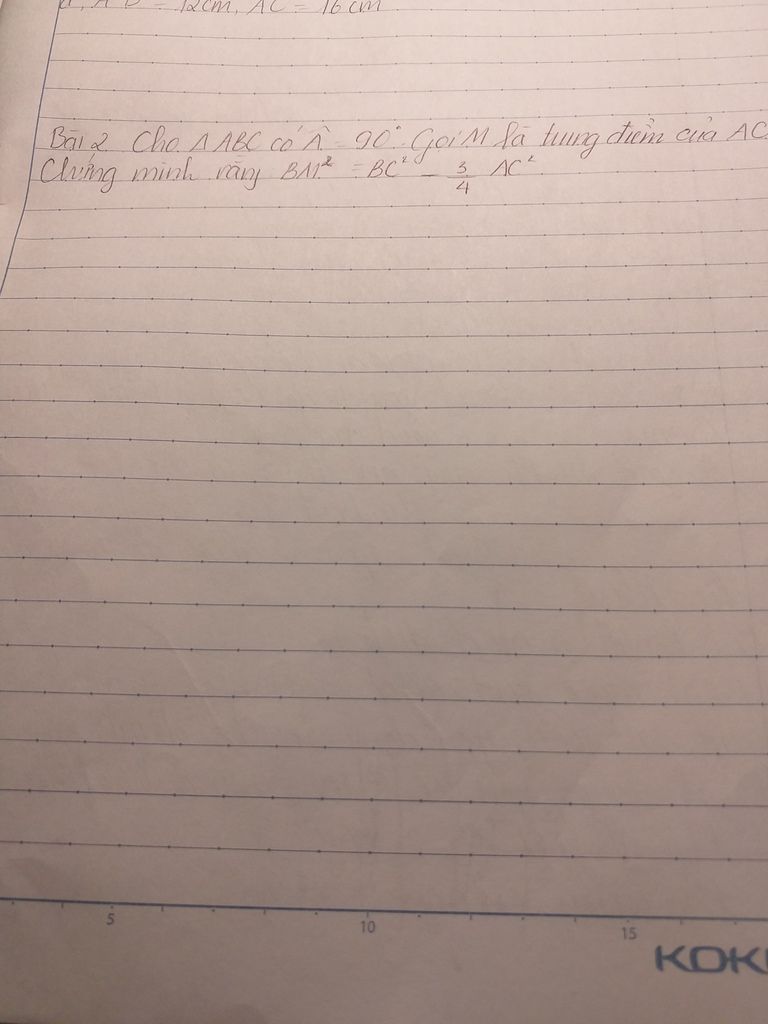 = 12cm, AC = 16 cm
Bài 2 Cho Δ ABC có Â = 90°. Gọi M là trung điểm của AC
Chứng minh rằng BM² = BC² - 3/4 AC²
5 10 15
KOK